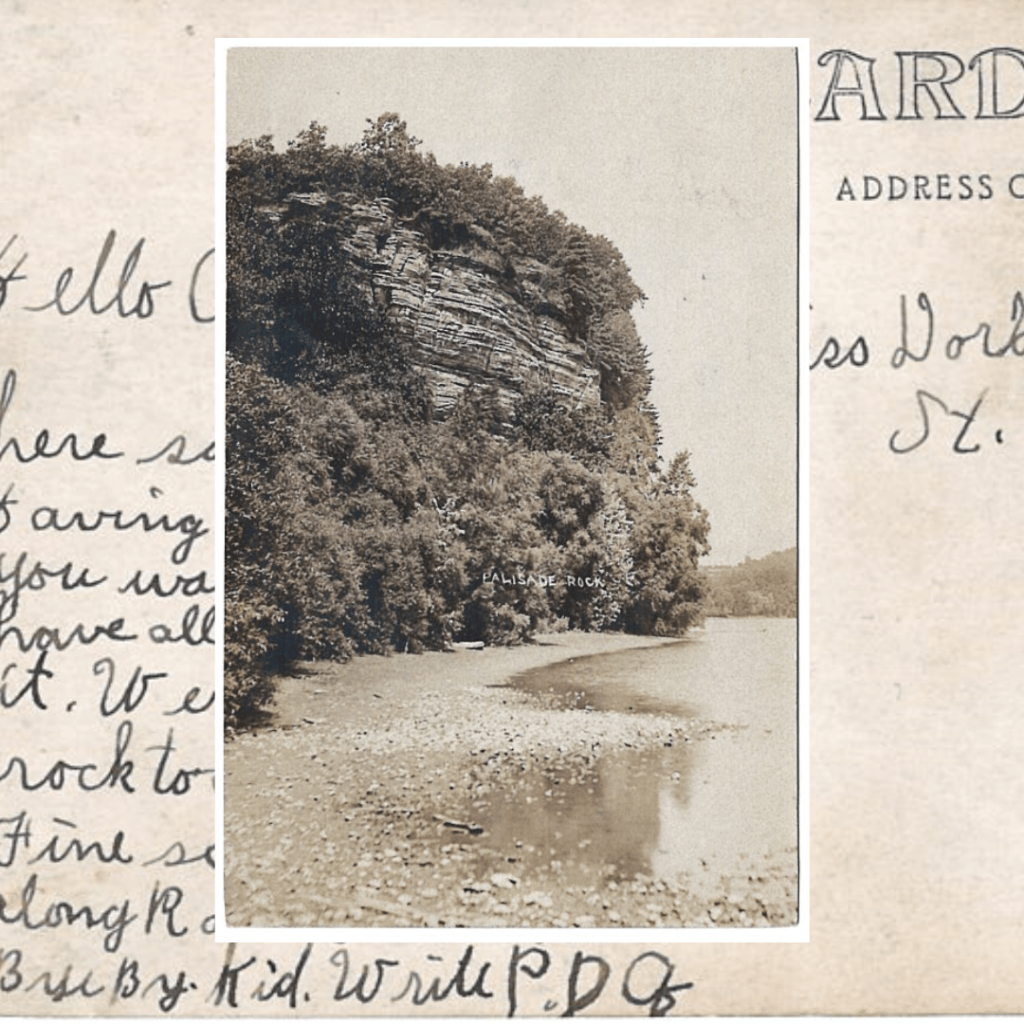 ARD
ADDRESS
Hello
iss
St.
here
Having
You wa
have all
it. We
rock to
Fine
along R
Bye By. Kid. Write P.D Q
PALISADE ROCK